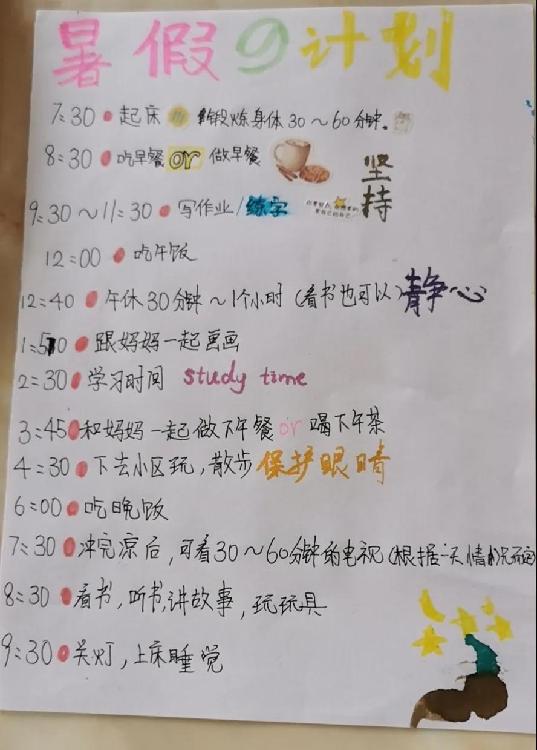 暑假の计划
7:30 起床 锻炼身体30~60分钟。
8:30 吃早餐 or 做早餐
坚持
9:30~11:30 写作业/练字
12:00 吃午饭
12:40 午休30分钟~1个小时(看书也可以) 静心
1:50 跟妈妈一起画画
2:30 学习时间 study time
3:45 和妈妈一起做下午餐 or 喝下午茶
4:30 下去小区玩,散步 保护眼睛
6:00 吃晚饭
7:30 冲完凉后,可看30~60分钟的电视(根据一天情况而定
8:30 看书,听书,讲故事,玩玩具
9:30 关灯,上床睡觉